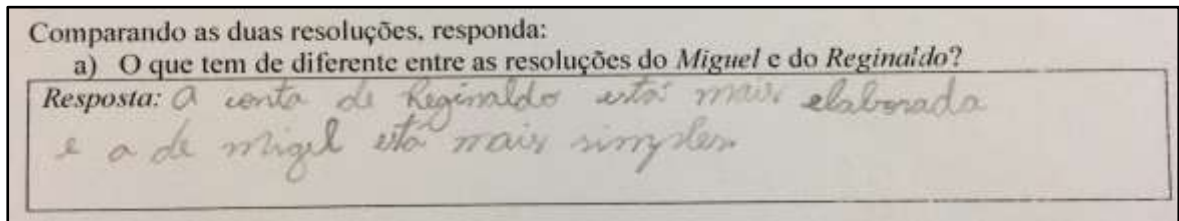 Comparando as duas resoluções, responda:
a) O que tem de diferente entre as resoluções do Miguel e do Reginaldo?
Resposta: A conta de Reginaldo está mais elaborada
e a de migel está mais simples